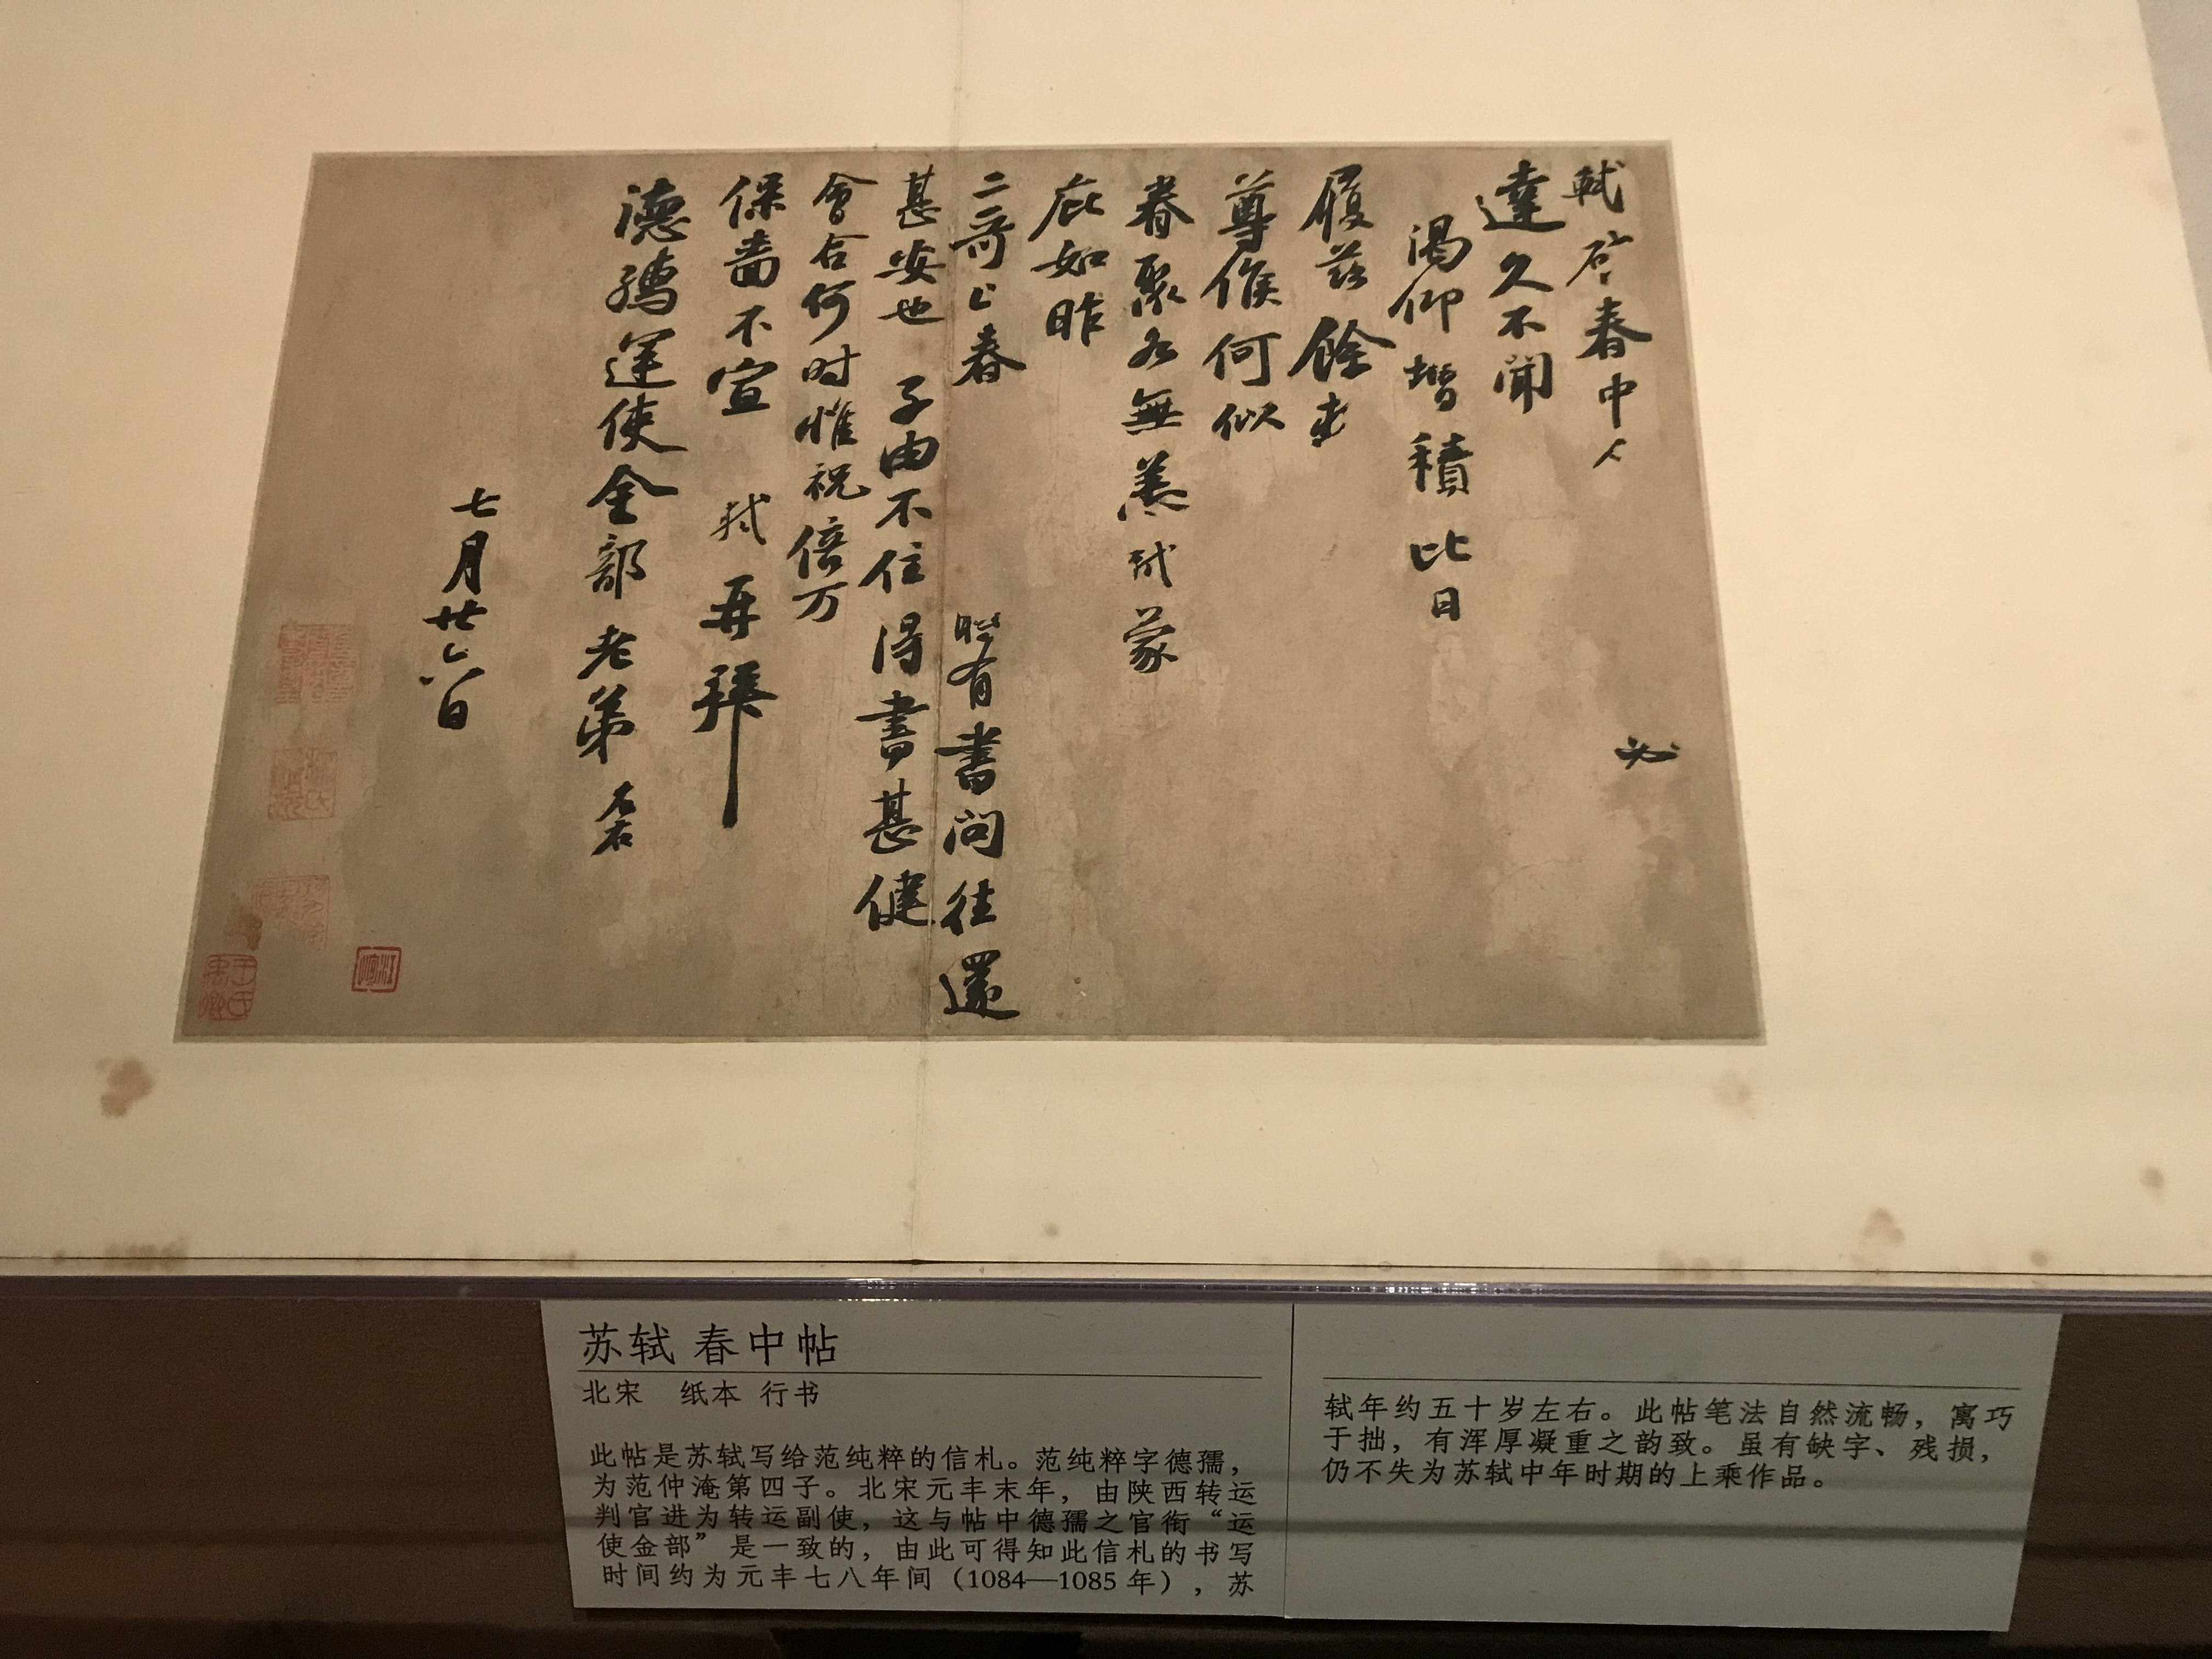 轼启春中人 必
達久不闻
渴仰增積比日
履兹餘熱
尊候何似
眷聚各無恙轼蒙
庇如昨
二哥上春 時有書問往還
甚安也子由不住得書甚健
會合何时惟祝倍万
保嗇不宣 轼再拜
德孺運使金部老弟 左右
七月廿六日
苏轼 春中帖
北宋 纸本 行书
此帖是苏轼写给范纯粹的信札。范纯粹字德孺，
为范仲淹第四子。北宋元丰末年，由陕西转运
判官进为转运副使，这与帖中德孺之官衔“运
使金部”是一致的，由此可得知此信札的书写
时间约为元丰七八年间（1084—1085 年），苏
轼年约五十岁左右。此帖笔法自然流畅，寓巧
于拙，有浑厚凝重之韵致。虽有缺字、残损，
仍不失为苏轼中年时期的上乘作品。